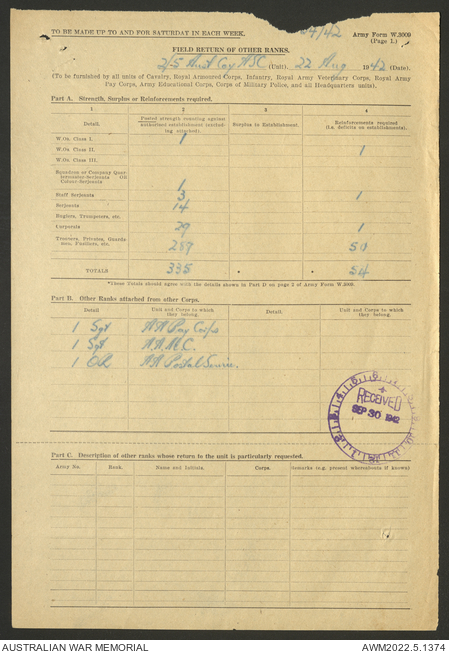 TO BE MADE UP TO AND FOR SATURDAY IN EACH WEEK.
Army Form W.3009
(Page 1.)
FIELD RETURN OF OTHER RANKS.
2/5 Coy ASC (Unit). 22 Aug 1942 (Date).
(To be furnished by all units of Cavalry, Royal Armoured Corps, Infantry, Royal Army Veterinary Corps, Royal Army
Pay Corps, Army Educational Corps, Corps of Military Police, and all Headquarters units).
Part A. Strength, Surplus or Reinforcements required.
1 2 3 4
Detail. Posted strength counting against authorised establishment (excluding attached). Surplus to Establishment. Reinforcements required (i.e. deficits on establishments).
W.Os. Class I. 1
W.Os. Class II. 1
W.Os. Class III.
Squadron or Company Quartermaster-Serjeants OR Colour-Serjeants 1
Staff Serjeants 3 1
Serjeants 14
Buglers, Trumpeters, etc.
Corporals 29 1
Troopers, Privates, Guardsmen, Fusiliers, etc. 51
TOTALS 335 * * 54
*These Totals should agree with the details shown in Part D on page 2 of Army Form W.3009.
Part B. Other Ranks attached from other Corps.
Detail. Unit and Corps to which they belong. Detail. Unit and Corps to which they belong.
1 Sgt AA Pay Corps
1 Sgt A.A.M.C.
1 OR AA Postal Service.
RECEIVED
SEP 30 1942
Part C. Description of other ranks whose return to the unit is particularly requested.
Army No. Rank. Name and Initials. Corps. Remarks (e.g. present whereabouts if known)
AUSTRALIAN WAR MEMORIAL
AWM2022.5.1374